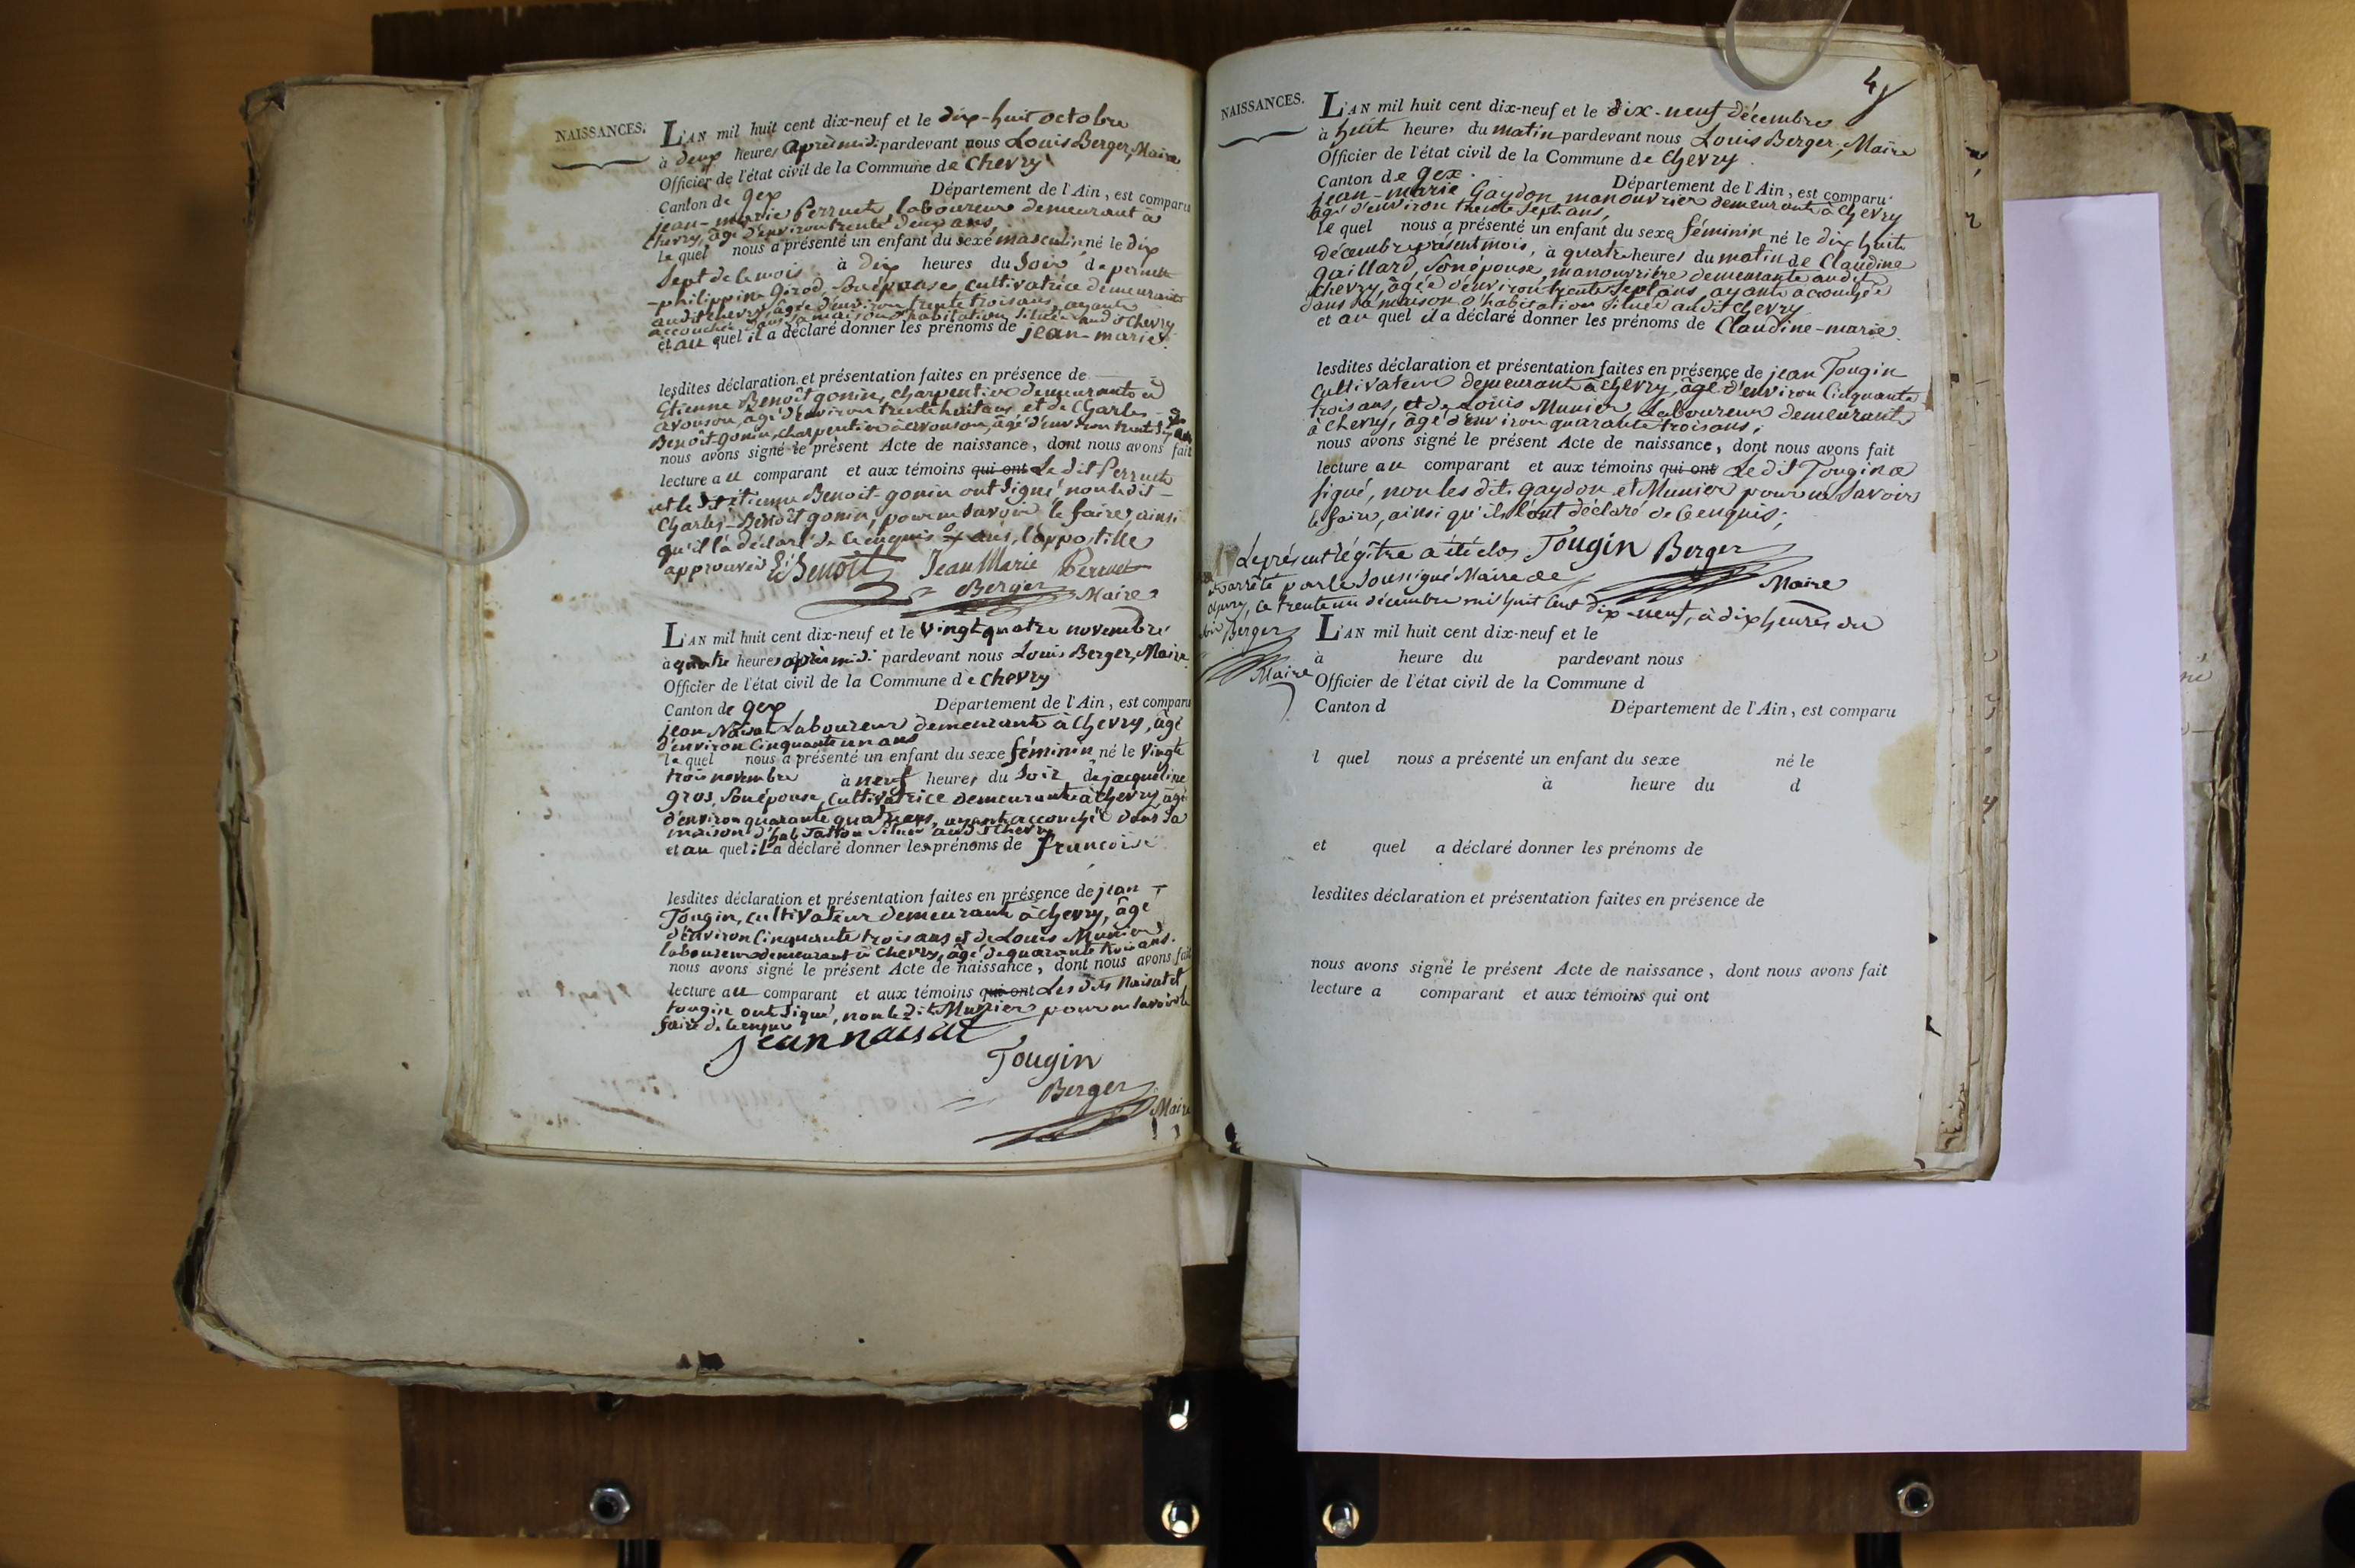 NAISSANCES.
L'AN mil huit cent dix-neuf et le dix-huit octobre
à deux heures après midi pardevant nous Louis Berger, Maire
Officier de l'état civil de la Commune de Chevry
Canton de gex Département de l'Ain, est comparu
jean-marie Perruet laboureur demeurant à
Chevry, âgé d'environ trente deux ans,
le quel nous a présenté un enfant du sexe masculin né le dix
sept de ce mois à dix heures du Soir de pernette
-philippine Girod, Son épouse, cultivatrice demeurant
audit chevry, âgée d'environ trente trois ans, ayant
accouchée dans sa maison d'habitation située aud.t Chevry
et au quel il a déclaré donner les prénoms de jean-marie.
lesdites déclaration et présentation faites en présence de
Etienne Benoît gonin, charpentier demeurant à
avouson, âgé d'environ trente huit ans, et de Charles
Benoît gonin, charpentier à avouson, âgé d'environ trente
nous avons signé le présent Acte de naissance, dont nous avons fait
lecture au comparant et aux témoins qui ont Le dit Perruet
et le dit Etienne Benoit-gonin ont Signé, non le dit
Charles-Benoît gonin, pour ne Savoir le faire, ainsi
qu'il l'a déclaré de ce enquis ans, l'appostille
approuvée E Benoit Jean Marie Perruet
Berger Maire
L'AN mil huit cent dix-neuf et le Vingt quatre novembre
à quatre heures après midi pardevant nous Louis Berger, Maire
Officier de l'état civil de la Commune de Chevry
Canton de gex Département de l'Ain, est comparu
jean Naisat Laboureur demeurant à Chevry, âgé
d'environ Cinquante un ans
le quel nous a présenté un enfant du sexe féminin né le Vingt
trois novembre à neuf heures du Soir de jacqueline
gros, Son épouse, Cultivatrice demeurante à Chevry, âgé
d'environ quarante quatre ans, ayant accouchée dans Sa
maison d'habitation Située aud.t Chevry
et au quel il a déclaré donner les prénoms de françoise
lesdites déclaration et présentation faites en présence de jean
Tougin, Cultivateur demeurant à Chevry, âgé
d'environ Cinquante trois ans et de Louis Munier
laboureur demeurant à Chevry, âgé de quarante trois ans.
nous avons signé le présent Acte de naissance, dont nous avons fait
lecture au comparant et aux témoins qui ont Les dits Naisat et
tougin ont Signé, non le dit Munier pour ne Savoir le
faire de ce enquis
jean naisat
Tougin
Berger
Maire
4
NAISSANCES.
L'AN mil huit cent dix-neuf et le dix-neuf décembre
à huit heures du matin pardevant nous Louis Berger, Maire
Officier de l'état civil de la Commune de Chevry
Canton de gex. Département de l'Ain, est comparu
jean-marie Gaydon, manouvrier demeurant à Chevry
âgé d'environ trente Sept ans,
le quel nous a présenté un enfant du sexe féminin né le dix huit
décembre présent mois, à quatre heures du matin de Claudine
gaillard, Son épouse, manouvrière demeurante audit
Chevry, âgée d'environ trente Sept ans, ayant accouchée
dans Sa maison d'habitation Située audit Chevry
et au quel il a déclaré donner les prénoms de Claudine-marie.
lesdites déclaration et présentation faites en présence de jean Tougin
Cultivateur demeurant à Chevry, âgé d'environ Cinquante
trois ans, et de Louis Munier, Laboureur demeurant
à Chevry, âgé d'environ quarante trois ans;
nous avons signé le présent Acte de naissance, dont nous avons fait
lecture au comparant et aux témoins qui ont Le dit Tougin a
signé, non les dits Gaydon et Munier pour ne Savoir
le faire, ainsi qu'ils l'ont déclaré de ce enquis;
Tougin Berger
Maire
Le présent régitre a été clos
et arrêté par le Soussigné Maire de
Chevry, ce trente un décembre mil huit cent dix-neuf, à dix heures du
Soir Berger
Maire
L'AN mil huit cent dix-neuf et le
à heure du pardevant nous
Officier de l'état civil de la Commune d
Canton d Département de l'Ain, est comparu
l quel nous a présenté un enfant du sexe né le
à heure du d
et quel a déclaré donner les prénoms de
lesdites déclaration et présentation faites en présence de
nous avons signé le présent Acte de naissance, dont nous avons fait
lecture a comparant et aux témoins qui ont